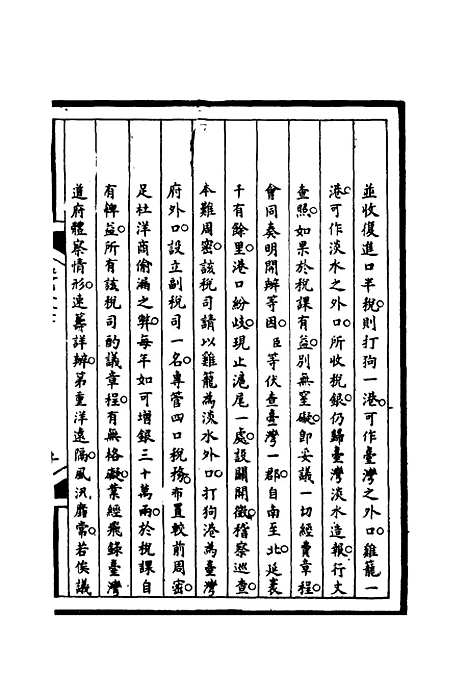 並收復進口半稅。則打狗一港。可作臺灣之外口。雞籠一
港。可作淡水之外口。所收稅銀。仍歸臺灣淡水造報。行文
查照。如果於稅課有益。別無窒礙。卽妥議一切經費章程。
會同奏明開辦等因。臣等伏查臺灣一郡。自南至北。延袤
千有餘里。港口紛歧。現止滬尾一處。設關開徵。稽察巡查。
本難周密。該稅司請以雞籠為淡水外口。打狗港為臺灣
府外口。設立副稅司一名。專管四口稅務。布置較前周密。
足杜洋商偷漏之弊。每年如可增銀三十萬兩。於稅課自
有裨益。所有該稅司酌議章程。有無格礙。業經飛錄臺灣
道府體察情形。速籌詳辦。第重洋遠隔。風汛靡常。若俟議